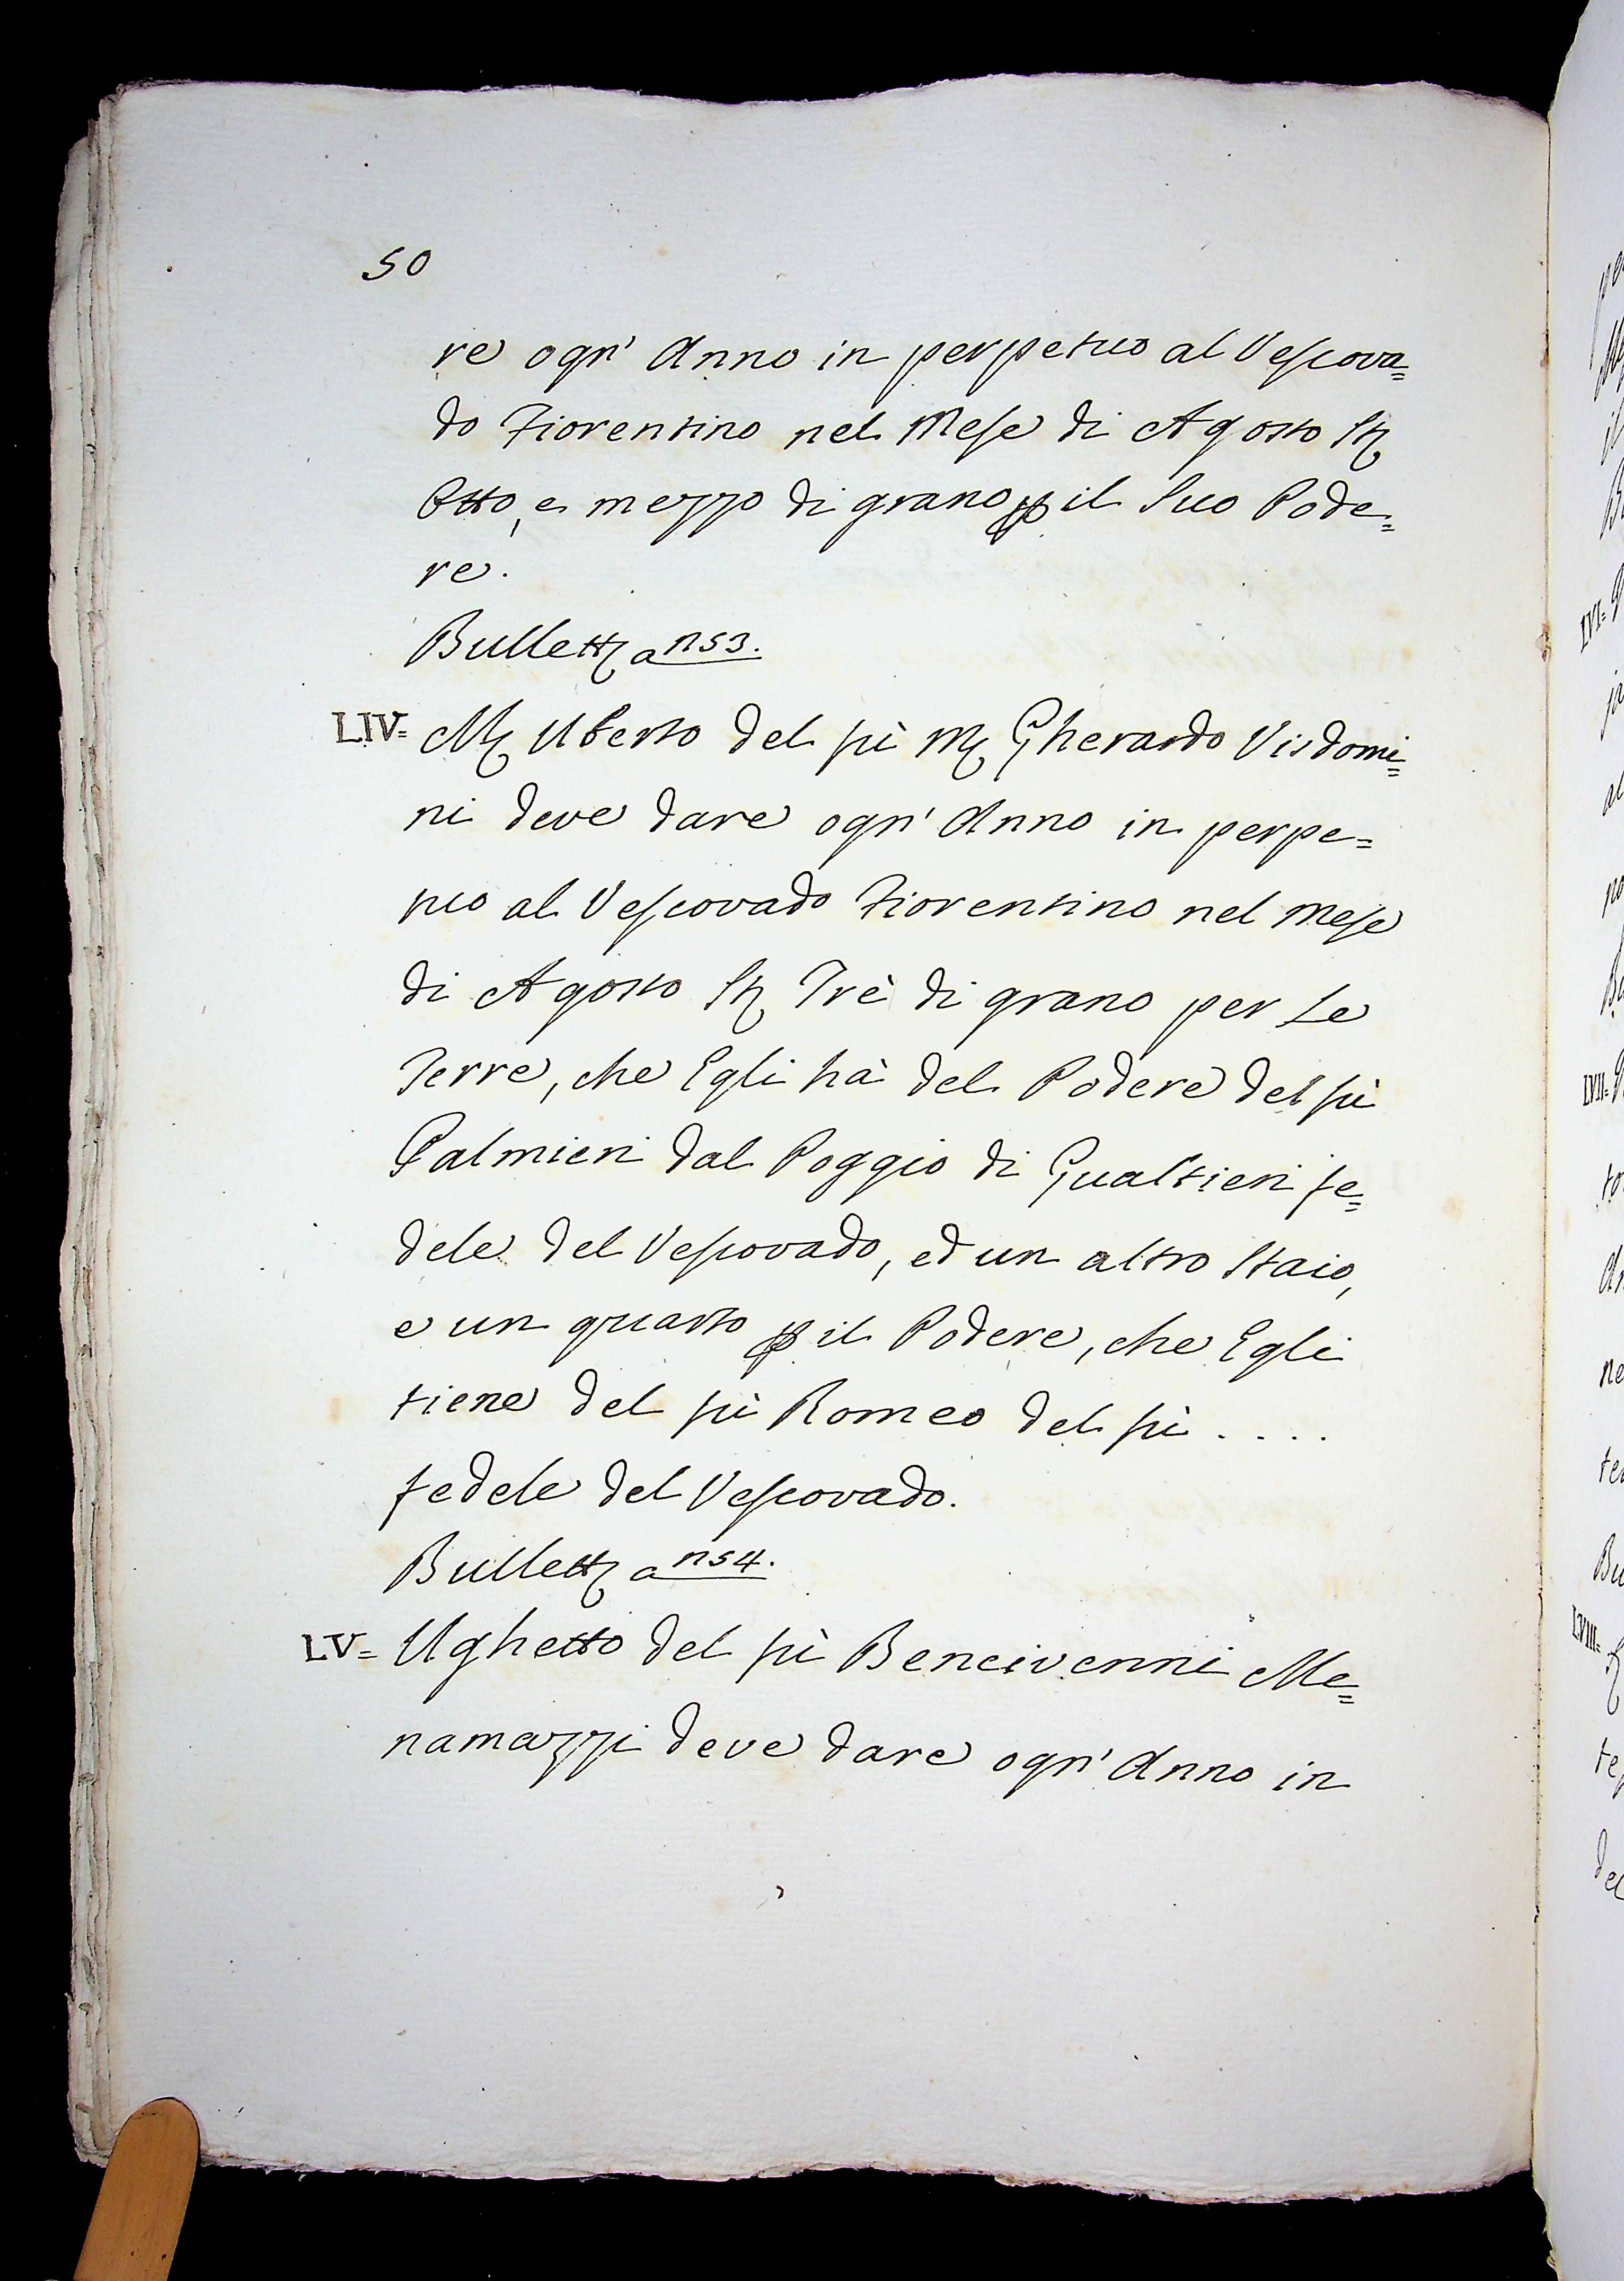 50
re ogn' Anno in perpetuo al Vescova=
do Fiorentino nel Mese di Agosto St
Otto, e mezzo di grano p il suo Pode=
re.
Bullett a n53.
LIV= M Uberto del fù M Gherardo Visdomi=
ni deve dare ogn' Anno in perpe=
tuo al Vescovado Fiorentino nel Mese
di Agosto St Trè di grano per Le
Terre, che Egli hà del Podere del fù
Palmieri dal Poggio di Gualtieri fe=
dele del Vescovado, ed un altro staio,
e un quarto p il Podere, che Egli
tiene del fù Romeo del fù ....
fedele del Vescovado.
Bullett a n54.
LV= Ughetto del fù Bencivenni Me=
namazzi deve dare ogn' Anno in